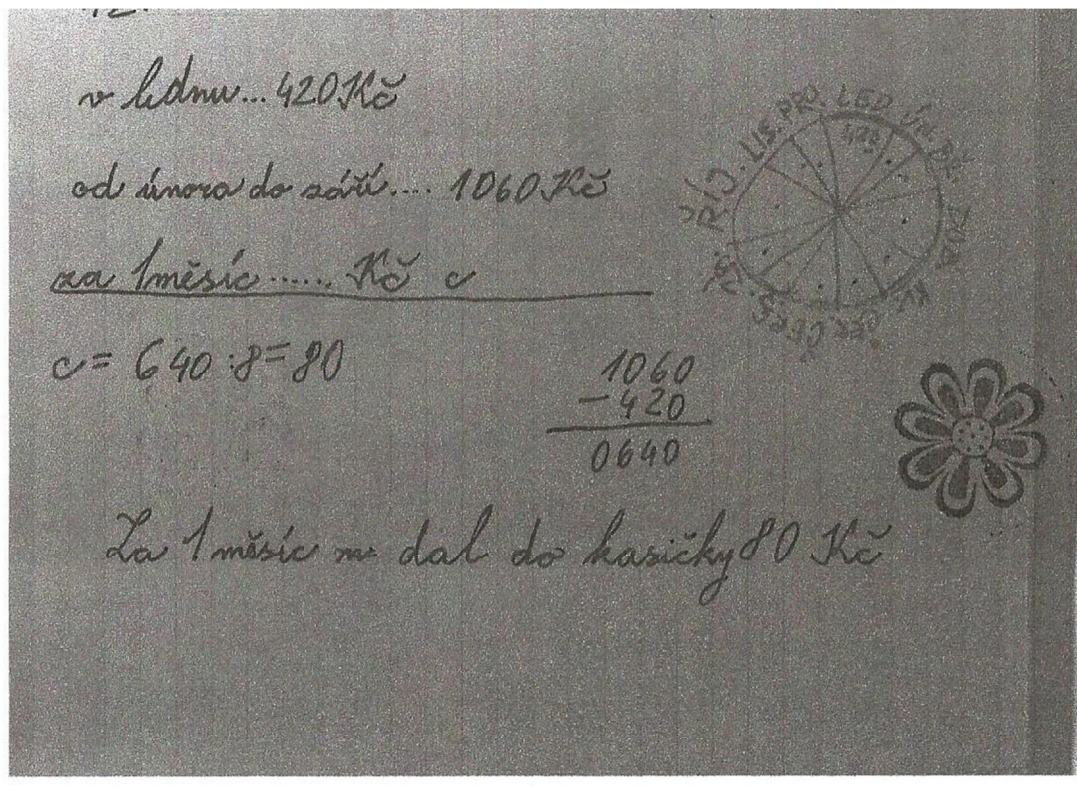 12.
v lednu... 420 Kč
od února do září.... 1060 Kč
za 1 měsíc ...... Kč c
c = 640 : 8 = 80
1060
- 420
0640
Za 1 měsíc dal do kasičky 80 Kč
ŘÍJ. LIS. PRO. LED ÚN. BŘ.
DUB